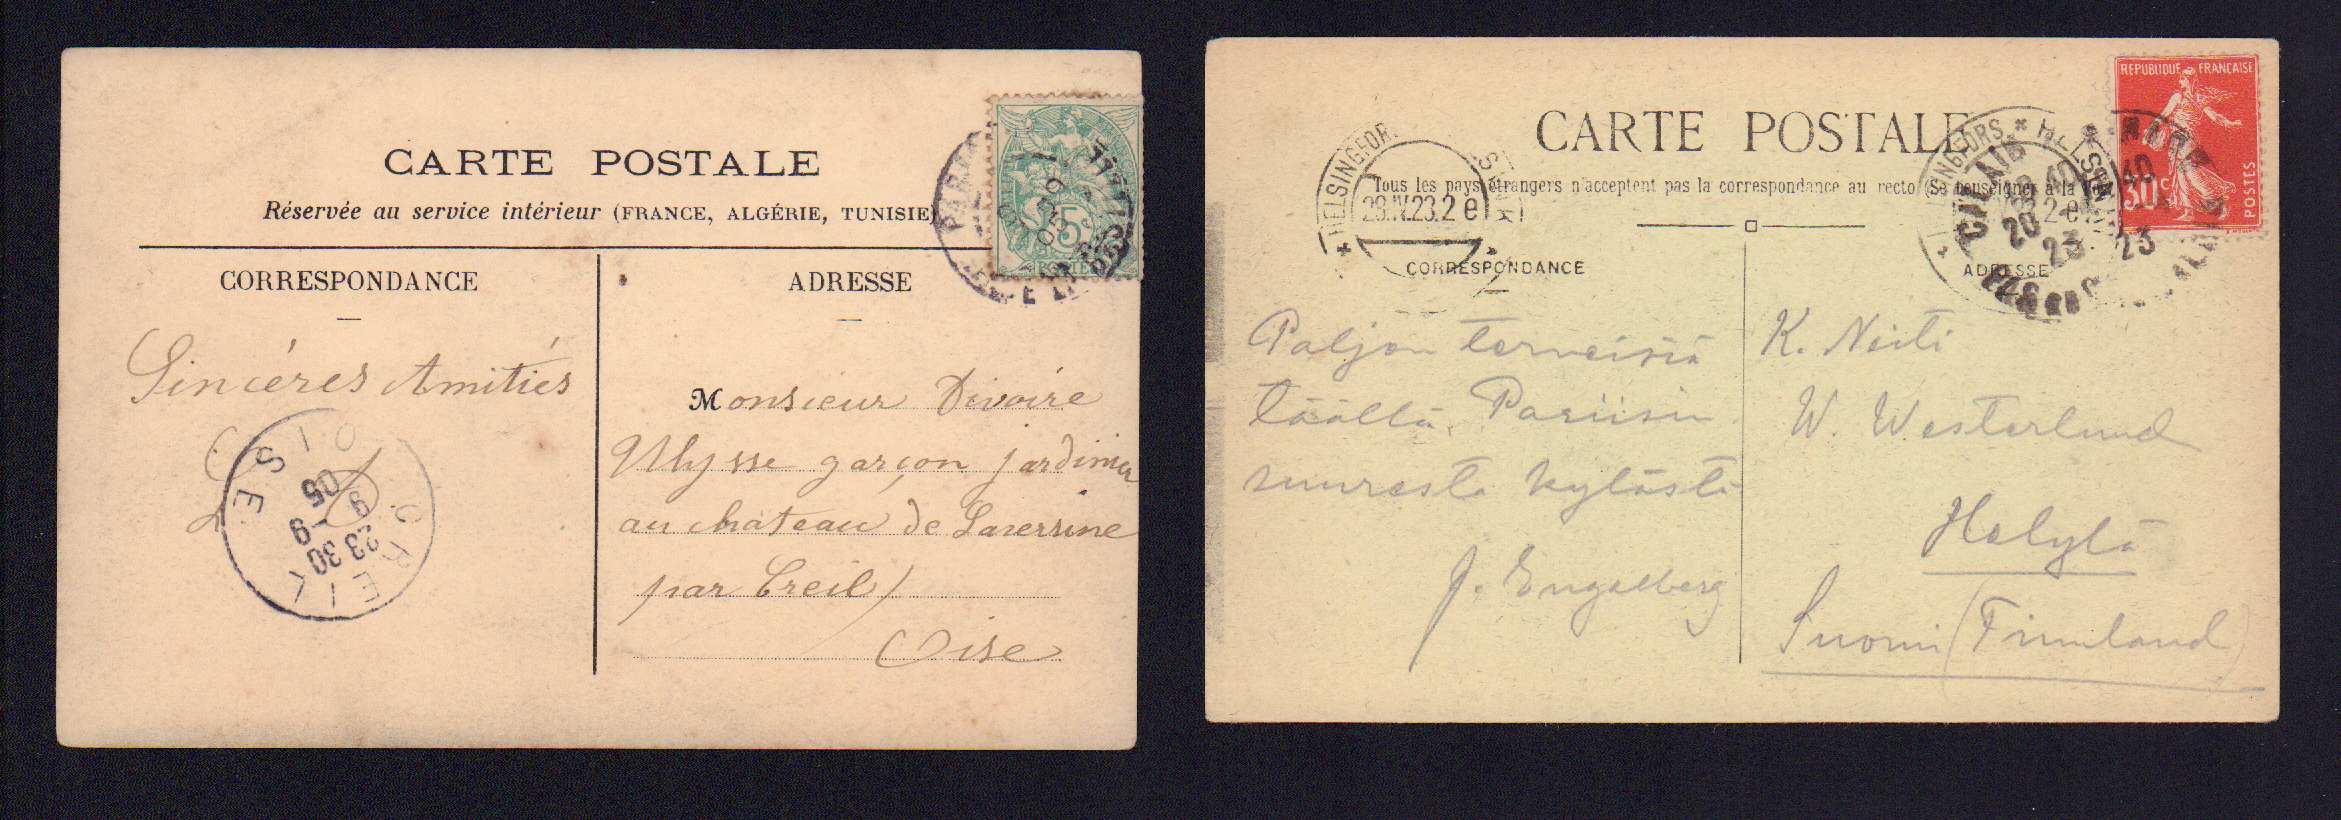 CARTE POSTALE
Réservée au service intérieur (FRANCE, ALGÉRIE, TUNISIE)
CORRESPONDANCE
ADRESSE
Sincéres Amitiés
Monsieur Divoire
Ulysse garçon jardinier
au château de Laversine
par Creil
Oise
5c
CREIL
OISE
23 30
9-9
05
CARTE POSTALE
Tous les pays étrangers n'acceptent pas la correspondance au recto (Se renseigner à la
CORRESPONDANCE
ADRESSE
REPUBLIQUE FRANÇAISE
30c
POSTES
HELSINGFORS
28.IV.23.2 e
Paljon terveisiä
täältä Pariisin
suuresta kylästä
J. Engelberg
K. Neiti
W. Westerlund
Helylä
Suomi (Finnland)